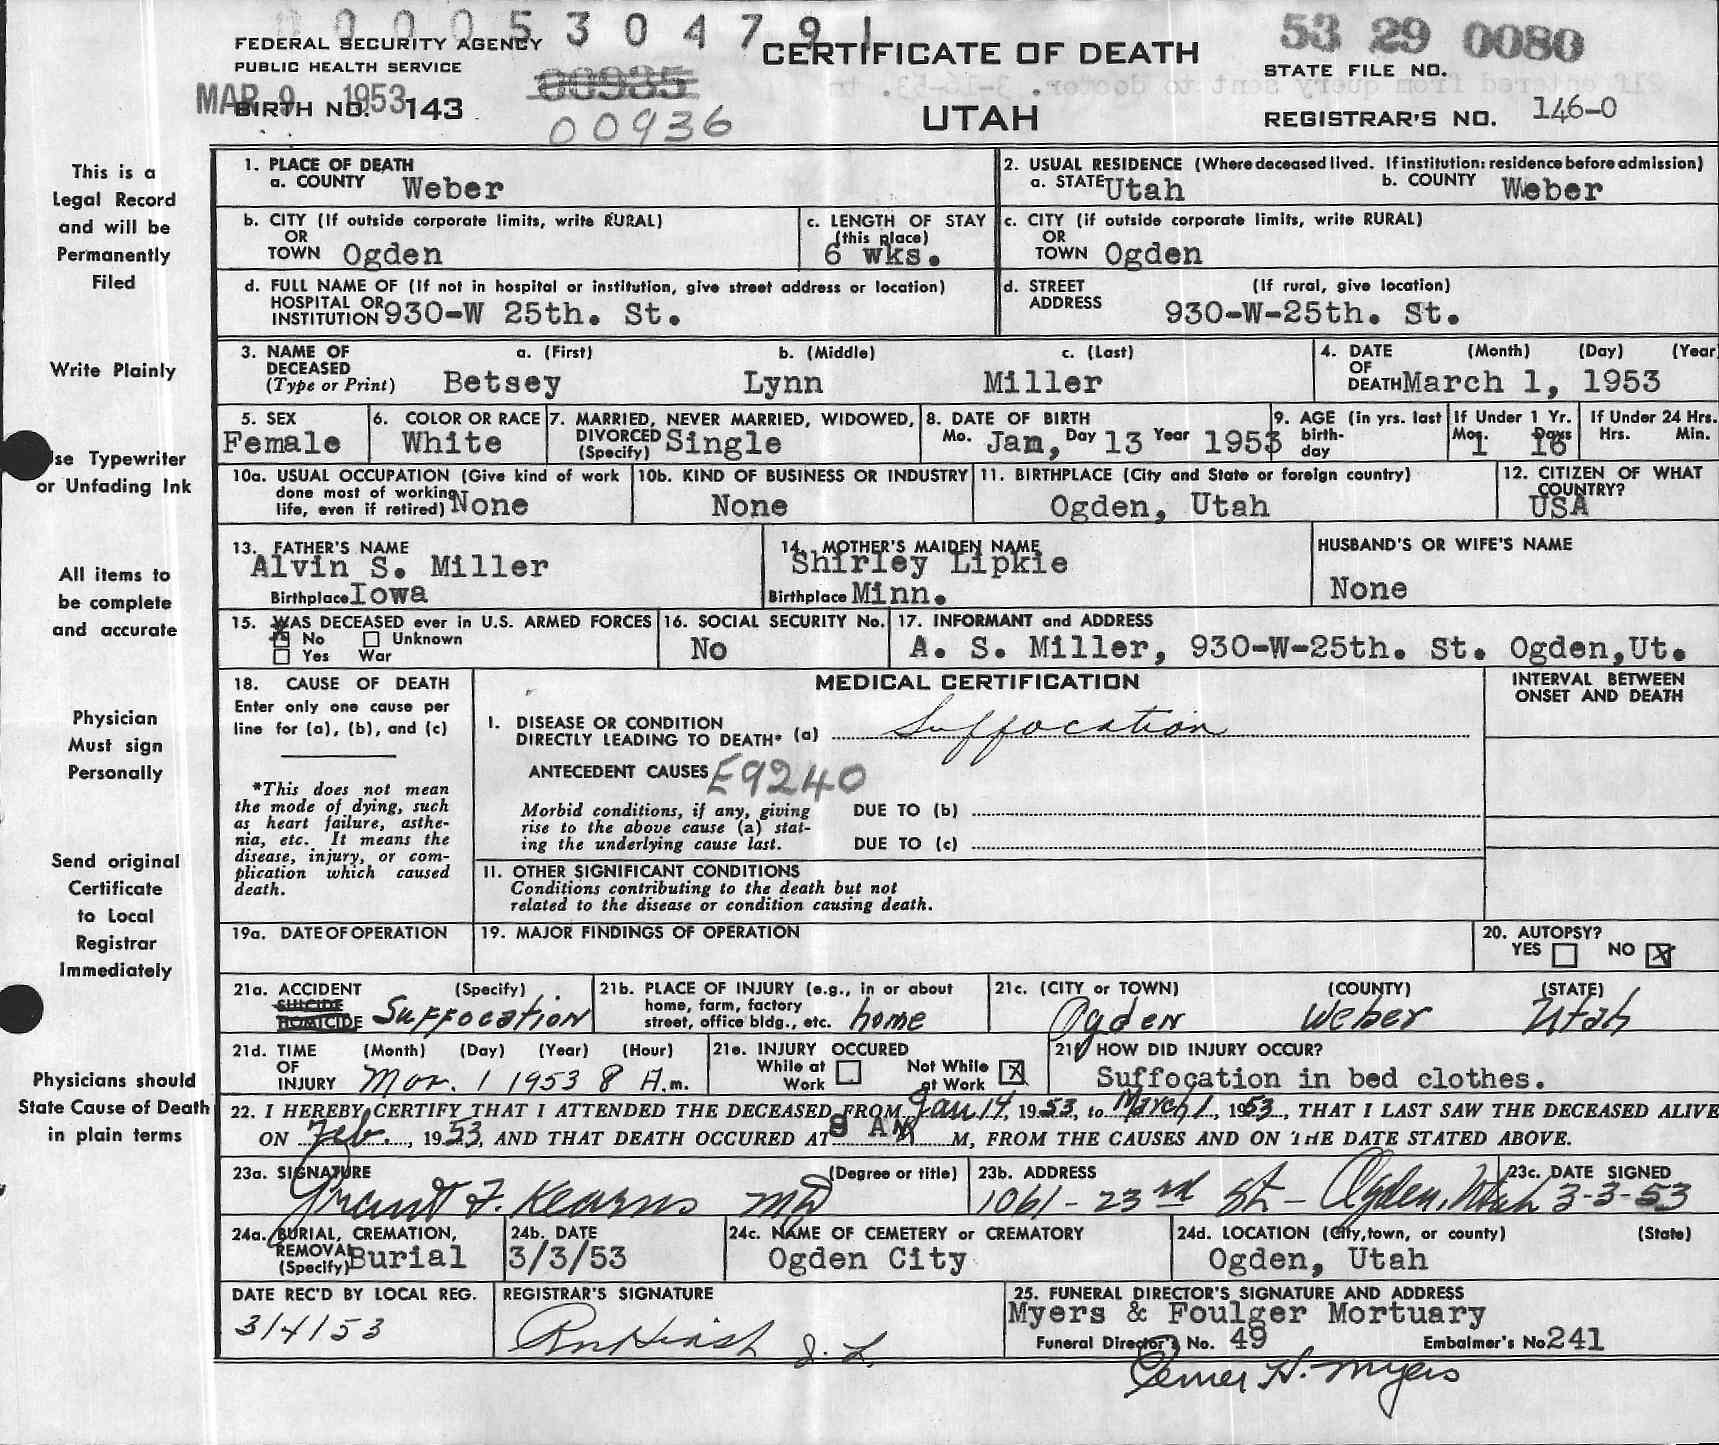 00005304791
53 29 0080
FEDERAL SECURITY AGENCY
PUBLIC HEALTH SERVICE
CERTIFICATE OF DEATH
STATE FILE NO.
MAR 9 1953
BIRTH NO. 143
00935
00936
UTAH
REGISTRAR'S NO. 146-0
This is a
Legal Record
and will be
Permanently
Filed
Write Plainly
Use Typewriter
or Unfading Ink
All items to
be complete
and accurate
Physician
Must sign
Personally
Send original
Certificate
to Local
Registrar
Immediately
Physicians should
State Cause of Death
in plain terms
1. PLACE OF DEATH
a. COUNTY Weber
2. USUAL RESIDENCE (Where deceased lived. If institution: residence before admission)
a. STATE Utah b. COUNTY Weber
b. CITY (If outside corporate limits, write RURAL)
OR
TOWN Ogden
c. LENGTH OF STAY
(this place)
6 wks.
c. CITY (if outside corporate limits, write RURAL)
OR
TOWN Ogden
d. FULL NAME OF (If not in hospital or institution, give street address or location)
HOSPITAL OR
INSTITUTION 930-W 25th. St.
d. STREET (If rural, give location)
ADDRESS 930-W-25th. St.
3. NAME OF a. (First) b. (Middle) c. (Last)
DECEASED
(Type or Print) Betsey Lynn Miller
4. DATE (Month) (Day) (Year)
OF
DEATH March 1, 1953
5. SEX
Female
6. COLOR OR RACE
White
7. MARRIED, NEVER MARRIED, WIDOWED,
DIVORCED Single
(Specify)
8. DATE OF BIRTH
Mo. Jan, Day 13 Year 1953
9. AGE (in yrs. last
birth-
day
If Under 1 Yr.
Mos. Days
1 16
If Under 24 Hrs.
Hrs. Min.
10a. USUAL OCCUPATION (Give kind of work
done most of working
life, even if retired) None
10b. KIND OF BUSINESS OR INDUSTRY
None
11. BIRTHPLACE (City and State or foreign country)
Ogden, Utah
12. CITIZEN OF WHAT
COUNTRY?
USA
13. FATHER'S NAME
Alvin S. Miller
Birthplace Iowa
14. MOTHER'S MAIDEN NAME
Shirley Lipkie
Birthplace Minn.
HUSBAND'S OR WIFE'S NAME
None
15. WAS DECEASED ever in U.S. ARMED FORCES
X No Unknown
Yes War
16. SOCIAL SECURITY No.
No
17. INFORMANT and ADDRESS
A. S. Miller, 930-W-25th. St. Ogden,Ut.
18. CAUSE OF DEATH
Enter only one cause per
line for (a), (b), and (c)
*This does not mean
the mode of dying, such
as heart failure, asthe-
nia, etc. It means the
disease, injury, or com-
plication which caused
death.
MEDICAL CERTIFICATION
INTERVAL BETWEEN
ONSET AND DEATH
I. DISEASE OR CONDITION
DIRECTLY LEADING TO DEATH* (a) Suffocation
ANTECEDENT CAUSES E9240
Morbid conditions, if any, giving
rise to the above cause (a) stat-
ing the underlying cause last.
DUE TO (b)
DUE TO (c)
II. OTHER SIGNIFICANT CONDITIONS
Conditions contributing to the death but not
related to the disease or condition causing death.
19a. DATE OF OPERATION
19. MAJOR FINDINGS OF OPERATION
20. AUTOPSY?
YES NO X
21a. ACCIDENT (Specify)
SUICIDE
HOMICIDE Suffocation
21b. PLACE OF INJURY (e.g., in or about
home, farm, factory
street, office bldg., etc. home
21c. (CITY or TOWN) (COUNTY) (STATE)
Ogden Weber Utah
21d. TIME (Month) (Day) (Year) (Hour)
OF
INJURY Mar. 1 1953 8 A.m.
21e. INJURY OCCURED
While at Work Not While at Work X
21f HOW DID INJURY OCCUR?
Suffocation in bed clothes.
22. I HEREBY CERTIFY THAT I ATTENDED THE DECEASED FROM Jan 14, 1953, to March 1, 1953, THAT I LAST SAW THE DECEASED ALIVE
ON Feb., 1953, AND THAT DEATH OCCURED AT 8 AM M, FROM THE CAUSES AND ON THE DATE STATED ABOVE.
23a. SIGNATURE (Degree or title)
Grant F. Kearns MD
23b. ADDRESS
1061-23rd St- Ogden, Utah
23c. DATE SIGNED
3-3-53
24a. BURIAL, CREMATION,
REMOVAL
(Specify) Burial
24b. DATE
3/3/53
24c. NAME OF CEMETERY or CREMATORY
Ogden City
24d. LOCATION (City, town, or county) (State)
Ogden, Utah
DATE REC'D BY LOCAL REG.
3/4/53
REGISTRAR'S SIGNATURE
25. FUNERAL DIRECTOR'S SIGNATURE AND ADDRESS
Myers & Foulger Mortuary
Funeral Director's No. 49 Embalmer's No 241
H. Myers